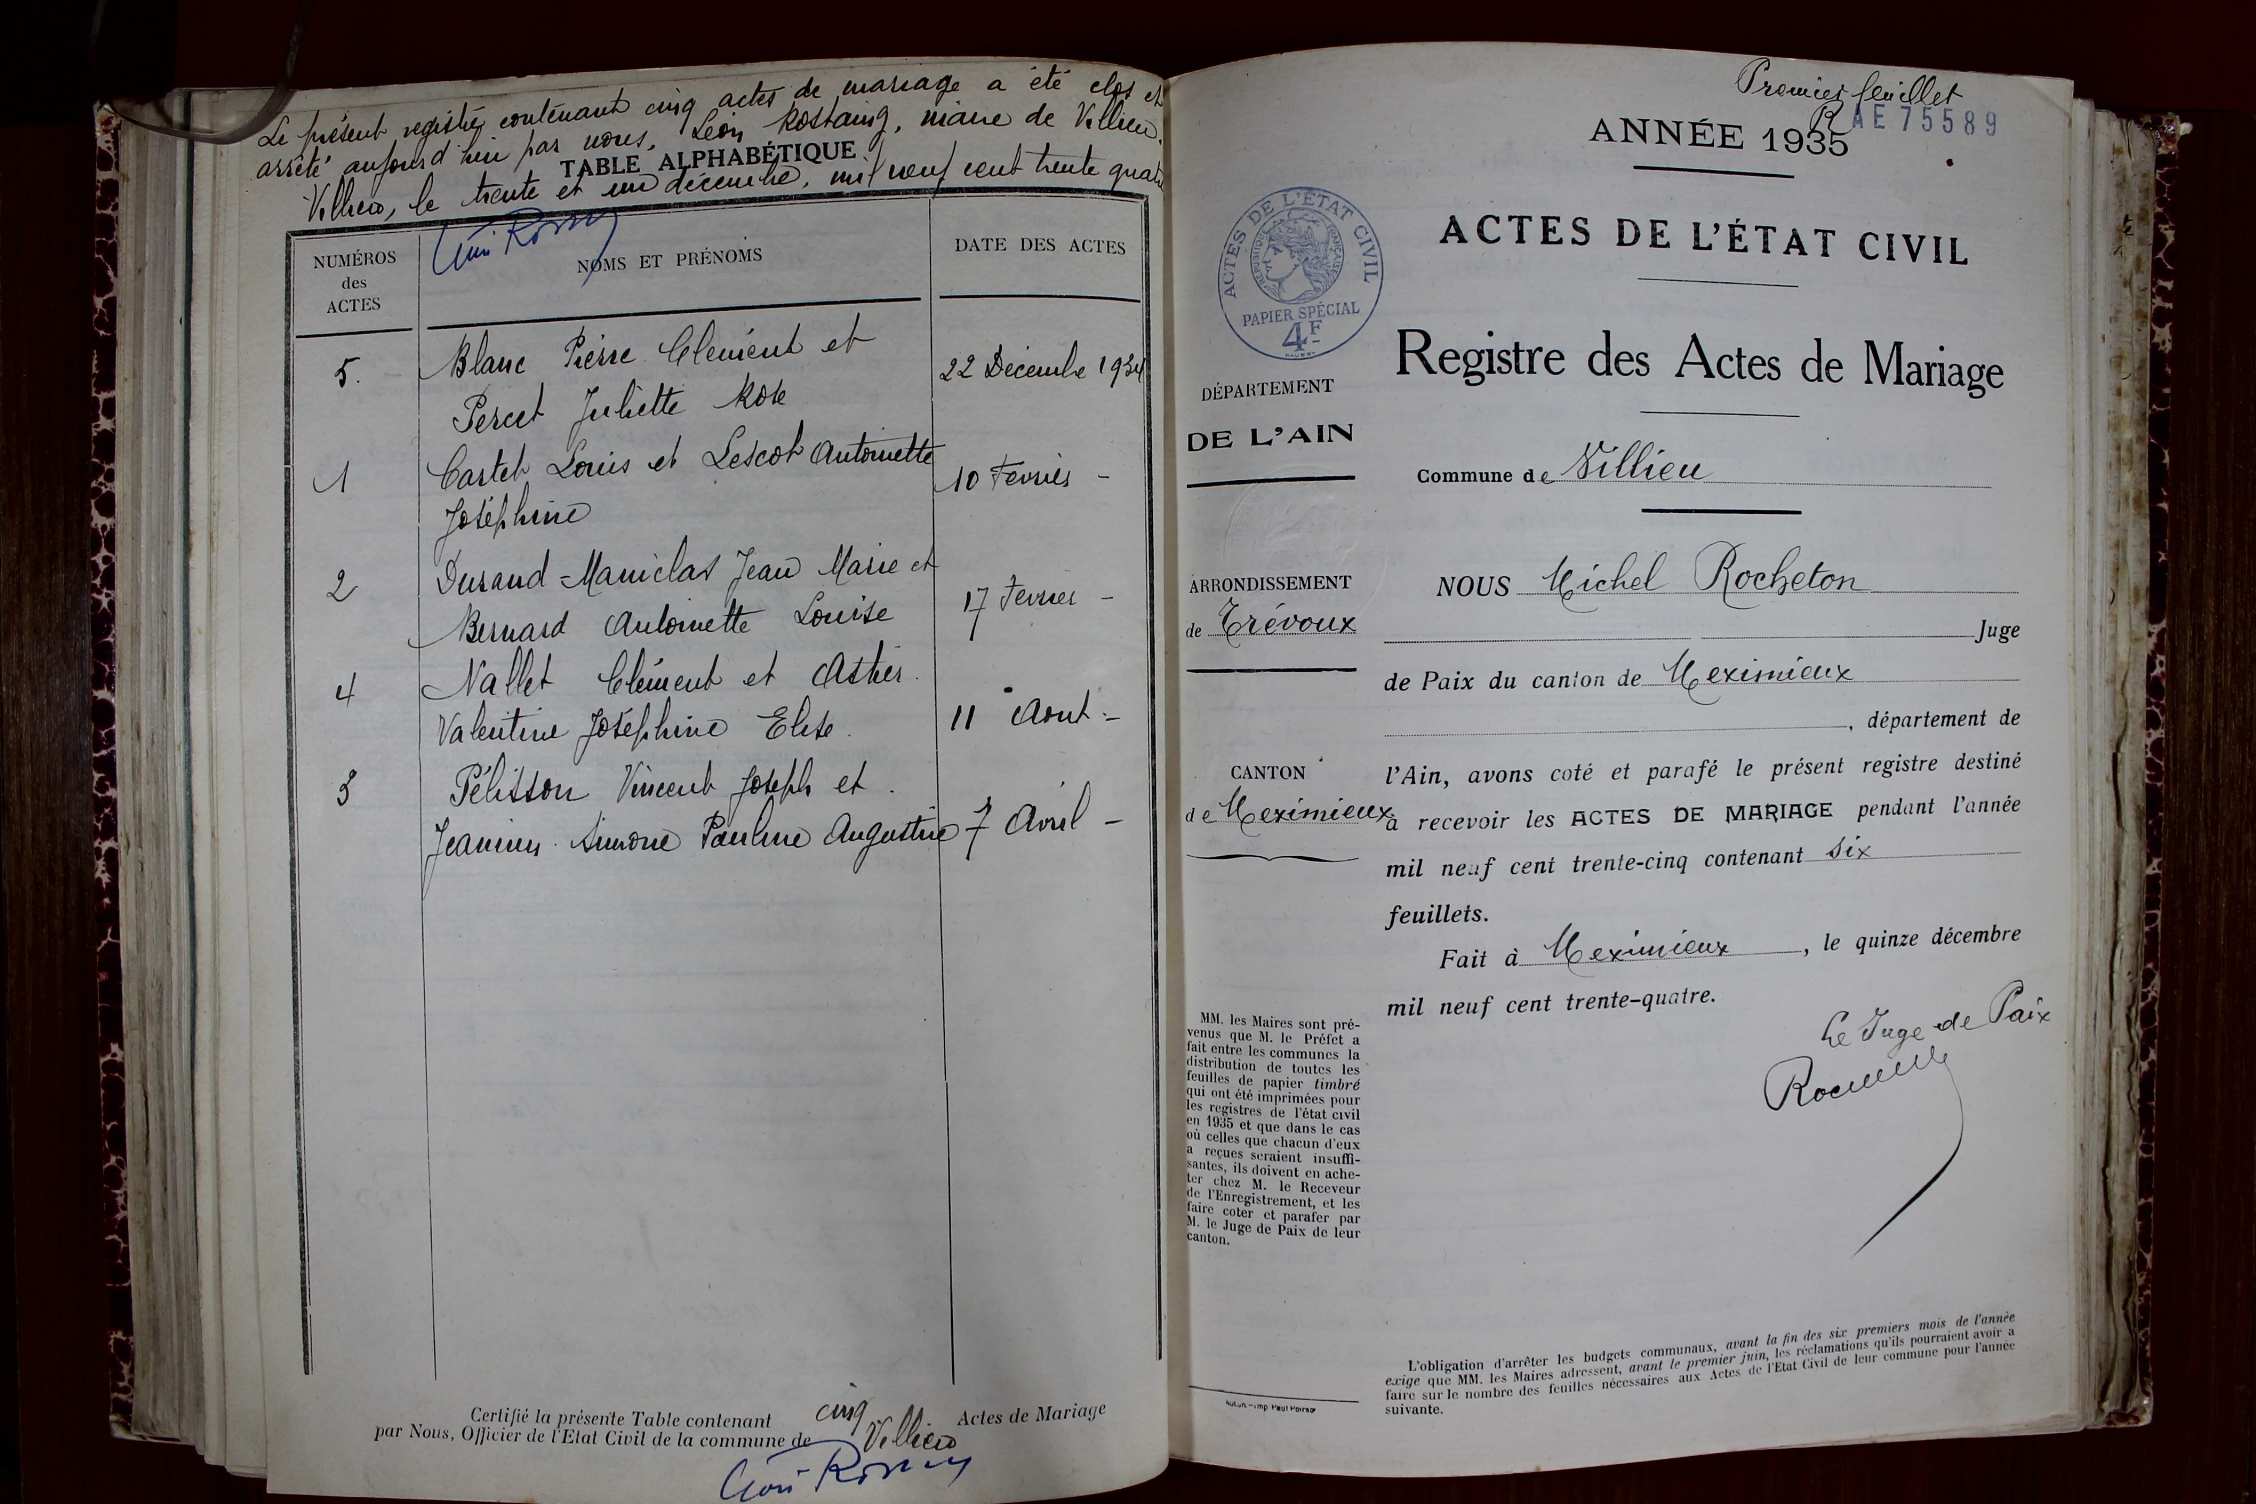 Le présent registre contenant cinq actes de mariage a été clos et
arrêté aujourd'hui par nous, Léon Rostaing, maire de Villieu.
TABLE ALPHABÉTIQUE
Villieu, le trente et un décembre, mil neuf cent trente quatre
NUMÉROS
des
ACTES
NOMS ET PRÉNOMS
DATE DES ACTES
5. Blanc Pierre Clément et 22 Décembre 1934
Percet Juliette Rose
1 Castet Louis et Lescot Antoinette 10 Février -
Joséphine
2 Durand-Maniclas Jean Marie et 17 Février -
Bernard Antoinette Louise
4 Nallet Clément et Astier.
Valentine Joséphine Elise. 11 Aout -
3 Pélisson Vincent Joseph et.
Jeannin Simone Pauline Augustine 7 Avril -
Certifié la présente Table contenant cinq Actes de Mariage
par Nous, Officier de l'Etat Civil de la commune de Villieu
Premier feuillet
R
AE 75589
ANNÉE 1935
ACTES DE L'ÉTAT CIVIL
ACTES DE L'ÉTAT CIVIL
RÉPUBLIQUE FRANÇAISE
PAPIER SPÉCIAL
4F
Registre des Actes de Mariage
DÉPARTEMENT
DE L'AIN
Commune de Villieu
ARRONDISSEMENT
de Trévoux
CANTON
de Meximieux
NOUS Michel Rocheton
Juge
de Paix du canton de Meximieux
, département de
l'Ain, avons coté et parafé le présent registre destiné
à recevoir les ACTES DE MARIAGE pendant l'année
mil neuf cent trente-cinq contenant six
feuillets.
Fait à Meximieux, le quinze décembre
mil neuf cent trente-quatre.
Le Juge de Paix
MM. les Maires sont pré-
venus que M. le Préfet a
fait entre les communes la
distribution de toutes les
feuilles de papier timbré
qui ont été imprimées pour
les registres de l'état civil
en 1935 et que dans le cas
où celles que chacun d'eux
a reçues seraient insuffi-
santes, ils doivent en ache-
ter chez M. le Receveur
de l'Enregistrement, et les
faire coter et parafer par
M. le Juge de Paix de leur
canton.
L'obligation d'arrêter les budgets communaux, avant la fin des six premiers mois de l'année
exige que MM. les Maires adressent, avant le premier juin, les réclamations qu'ils pourraient avoir à
faire sur le nombre des feuilles nécessaires aux Actes de l'Etat Civil de leur commune pour l'année
suivante.